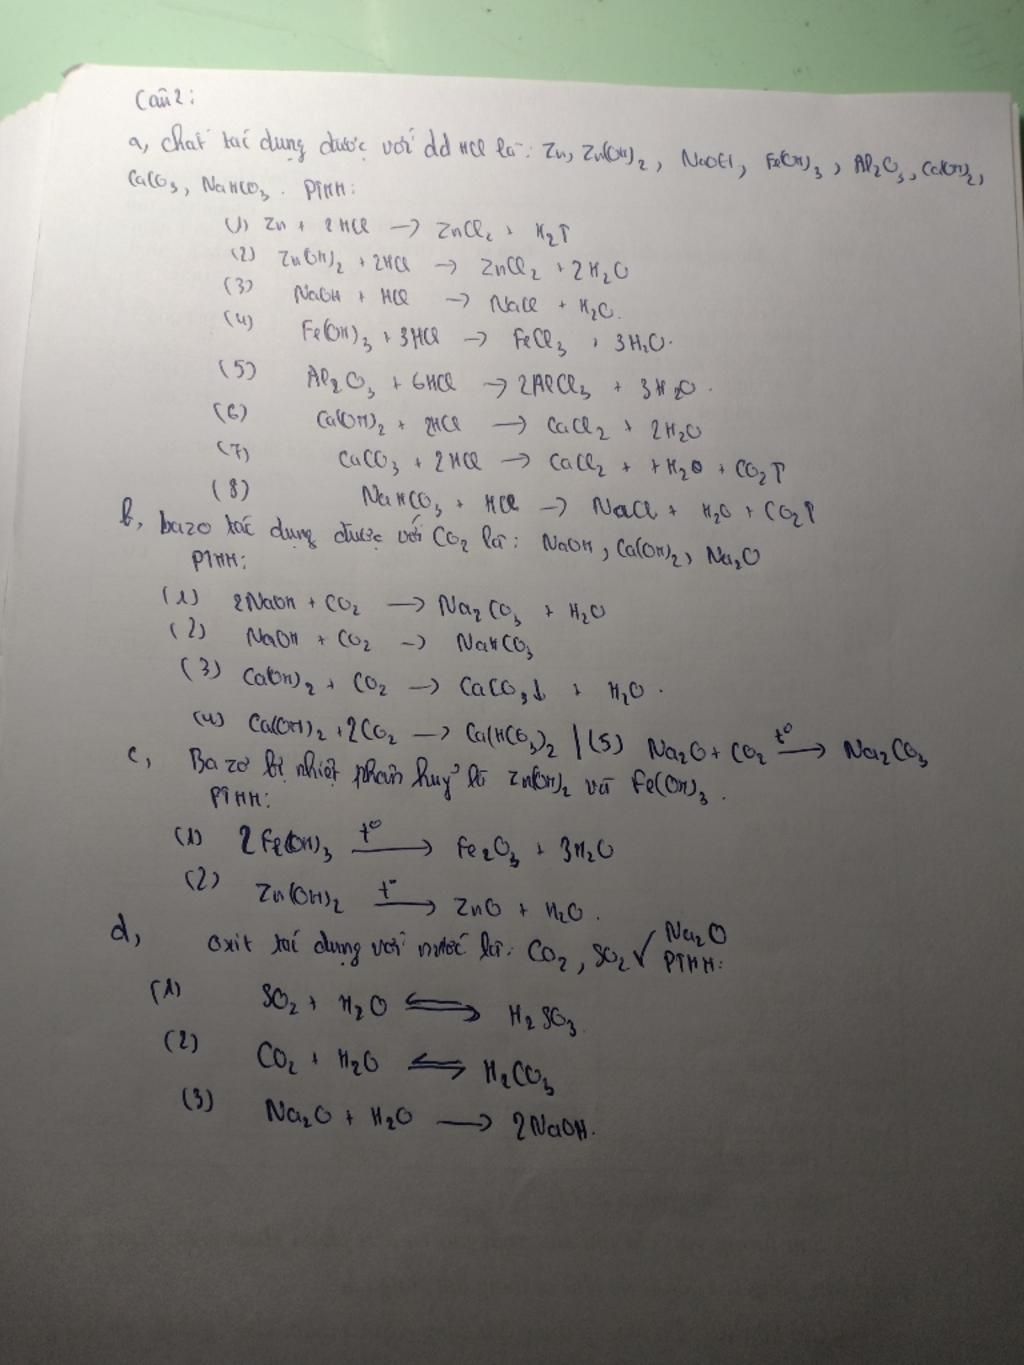 Câu 2:
a, chất tác dụng được với dd HCl là: Zn, Zn(OH)2, NaOH, Fe(OH)3, Al2O3, Ca(OH)2,
CaCO3, NaHCO3. PTHH:
(1) Zn + 2HCl → ZnCl2 + H2↑
(2) Zn(OH)2 + 2HCl → ZnCl2 + 2H2O
(3) NaOH + HCl → NaCl + H2O.
(4) Fe(OH)3 + 3HCl → FeCl3 + 3H2O.
(5) Al2O3 + 6HCl → 2AlCl3 + 3H2O.
(6) Ca(OH)2 + 2HCl → CaCl2 + 2H2O
(7) CaCO3 + 2HCl → CaCl2 + + H2O + CO2↑
(8) NaHCO3 + HCl → NaCl + H2O + CO2↑
b, bazo tác dụng được với CO2 là: NaOH, Ca(OH)2, Na2O
PTHH:
(1) 2NaOH + CO2 → Na2CO3 + H2O
(2) NaOH + CO2 → NaHCO3
(3) Ca(OH)2 + CO2 → CaCO3↓ + H2O.
(4) Ca(OH)2 + 2CO2 → Ca(HCO3)2 | (5) Na2O + CO2 t°→ Na2CO3
c, Bazơ bị nhiệt phân huỷ là Zn(OH)2 và Fe(OH)3.
PTHH:
(1) 2Fe(OH)3 t°→ Fe2O3 + 3H2O
(2) Zn(OH)2 t°→ ZnO + H2O.
d, oxit tác dụng với nước là: CO2, SO2 √ Na2O
PTHH:
(1) SO2 + H2O ⇌ H2SO3.
(2) CO2 + H2O ⇌ H2CO3
(3) Na2O + H2O → 2NaOH.